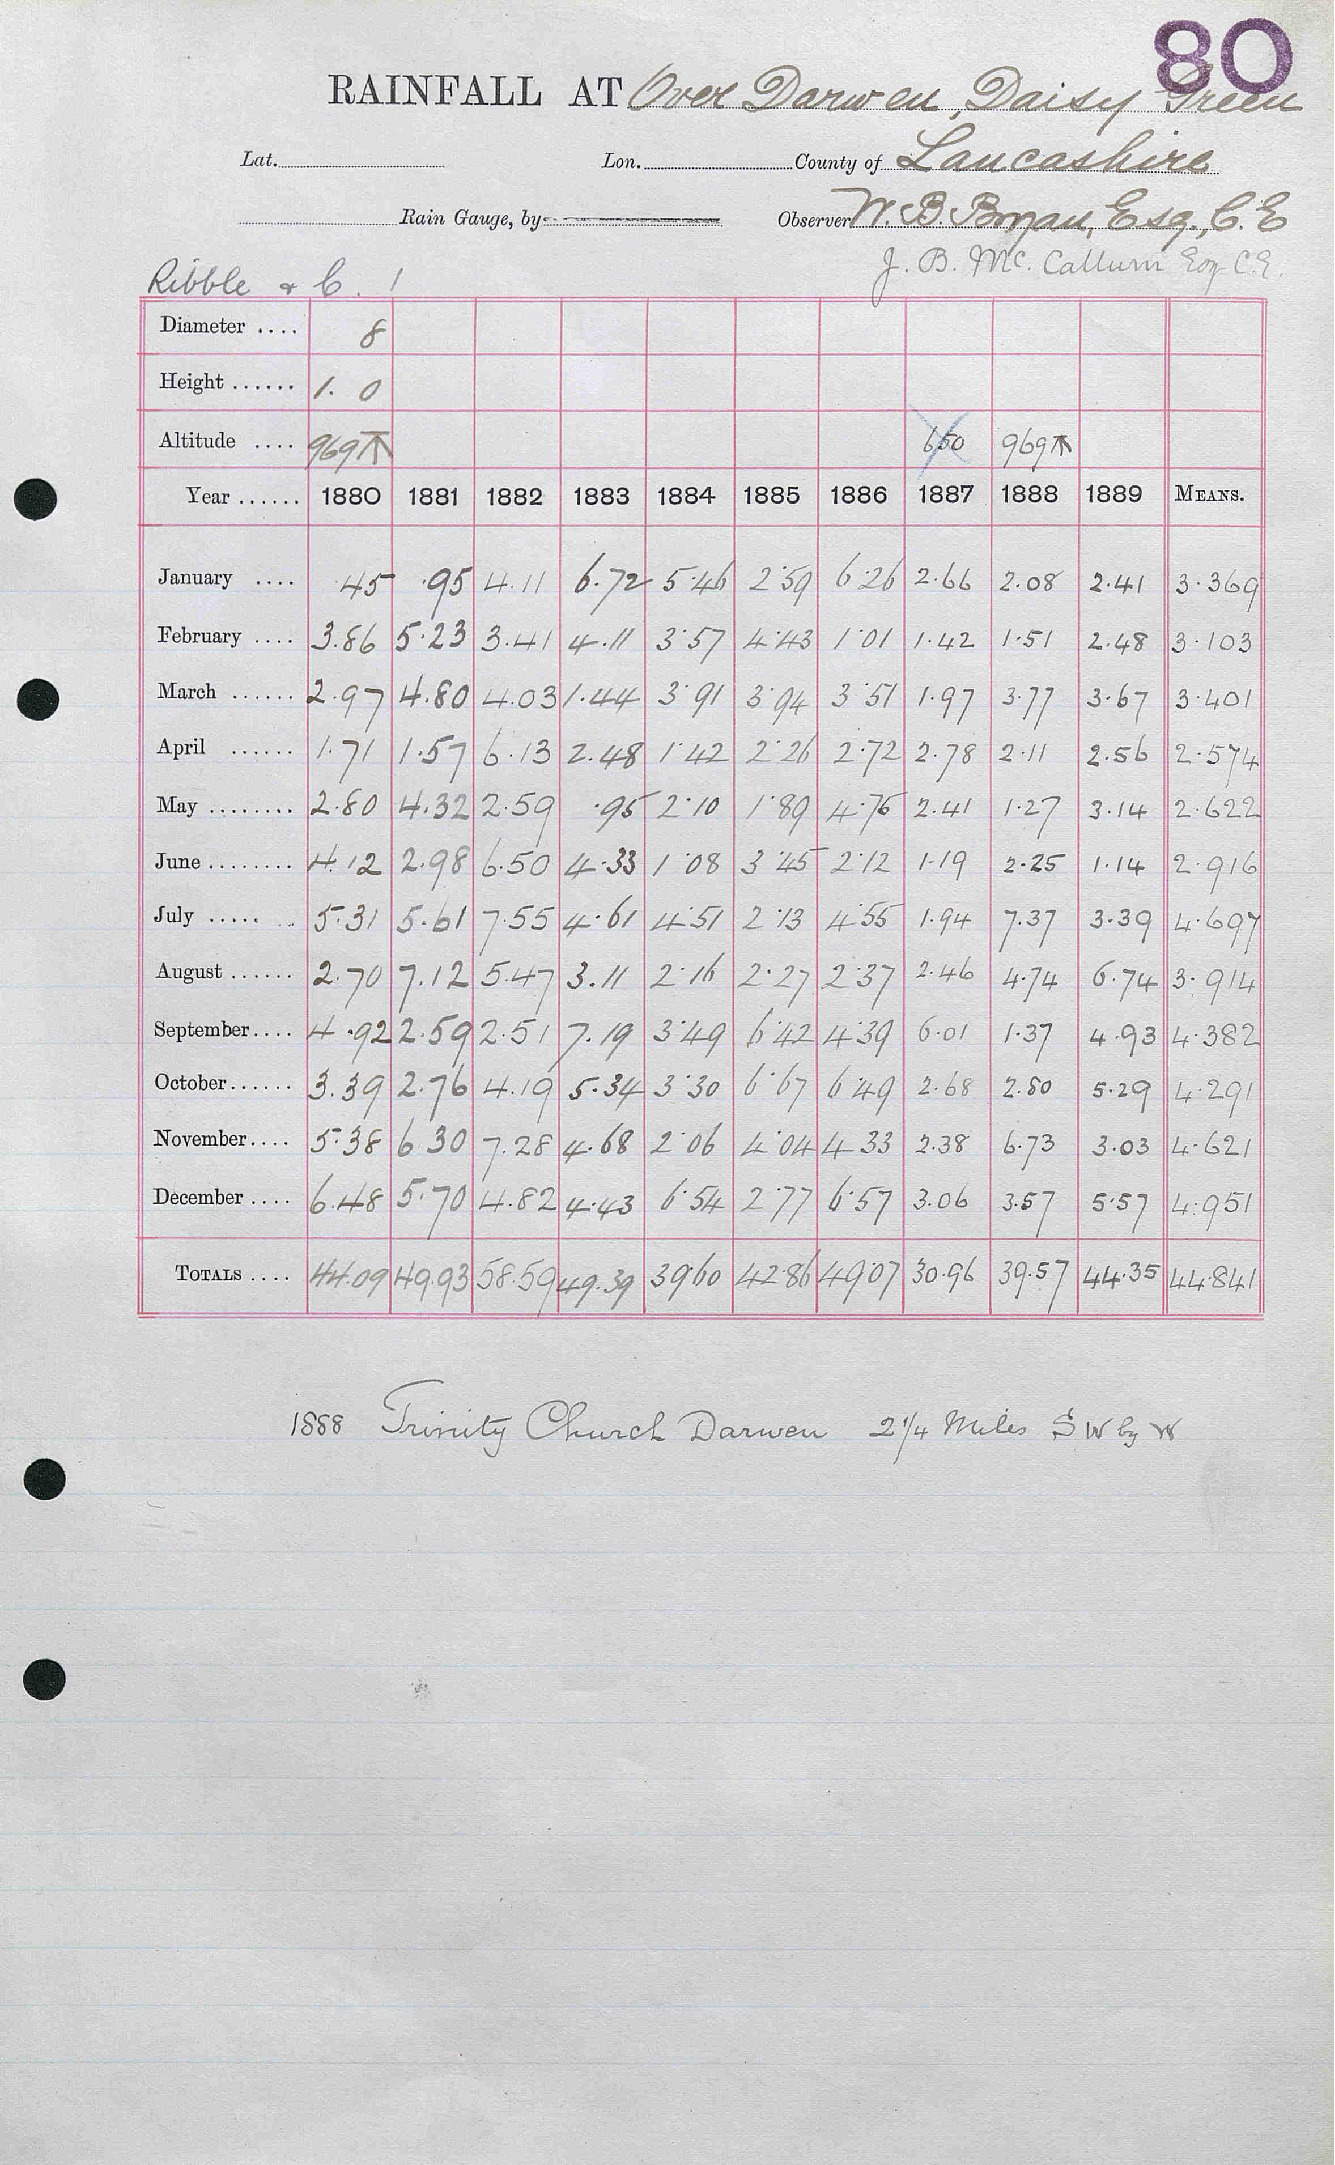 80
RAINFALL AT Over Darwen, Daisy Green
Lat. Lon. County of Lancashire
Rain Gauge, by Observer W. B. Bryan, Esq., C.E
J. B. Mc. Callum Esq C.E.
Ribble & C. 1
Diameter .... 8
Height ...... 1. 0
Altitude .... 969 650 969
Year ...... 1880 1881 1882 1883 1884 1885 1886 1887 1888 1889 MEANS.
January .... .45 .95 4.11 6.72 5.46 2.59 6.26 2.66 2.08 2.41 3.369
February .... 3.86 5.23 3.41 4.11 3.57 4.43 1.01 1.42 1.51 2.48 3.103
March ...... 2.97 4.80 4.03 1.44 3.91 3.94 3.51 1.97 3.77 3.67 3.401
April ...... 1.71 1.57 6.13 2.48 1.42 2.26 2.72 2.78 2.11 2.56 2.574
May ........ 2.80 4.32 2.59 .95 2.10 1.89 4.75 2.41 1.27 3.14 2.622
June ........ 4.12 2.98 6.50 4.33 1.08 3.45 2.12 1.19 2.25 1.14 2.916
July ..... .. 5.31 5.61 7.55 4.61 4.51 2.13 4.55 1.94 7.37 3.39 4.697
August ...... 2.70 7.12 5.47 3.11 2.16 2.27 2.37 2.46 4.74 6.74 3.914
September .... 4.92 2.59 2.51 7.19 3.49 6.42 4.39 6.01 1.37 4.93 4.382
October ...... 3.39 2.76 4.19 5.34 3.30 6.67 6.49 2.68 2.80 5.29 4.291
November .... 5.38 6 30 7.28 4.68 2.06 4.04 4.33 2.38 6.73 3.03 4.621
December .... 6.48 5.70 4.82 4.43 6.54 2.77 6.57 3.06 3.57 5.57 4.951
TOTALS .... 44.09 49.93 58.59 49.39 39.60 42.86 49.07 30.96 39.57 44.35 44.841
1888 Trinity Church Darwen 2 1/4 Miles S W by W